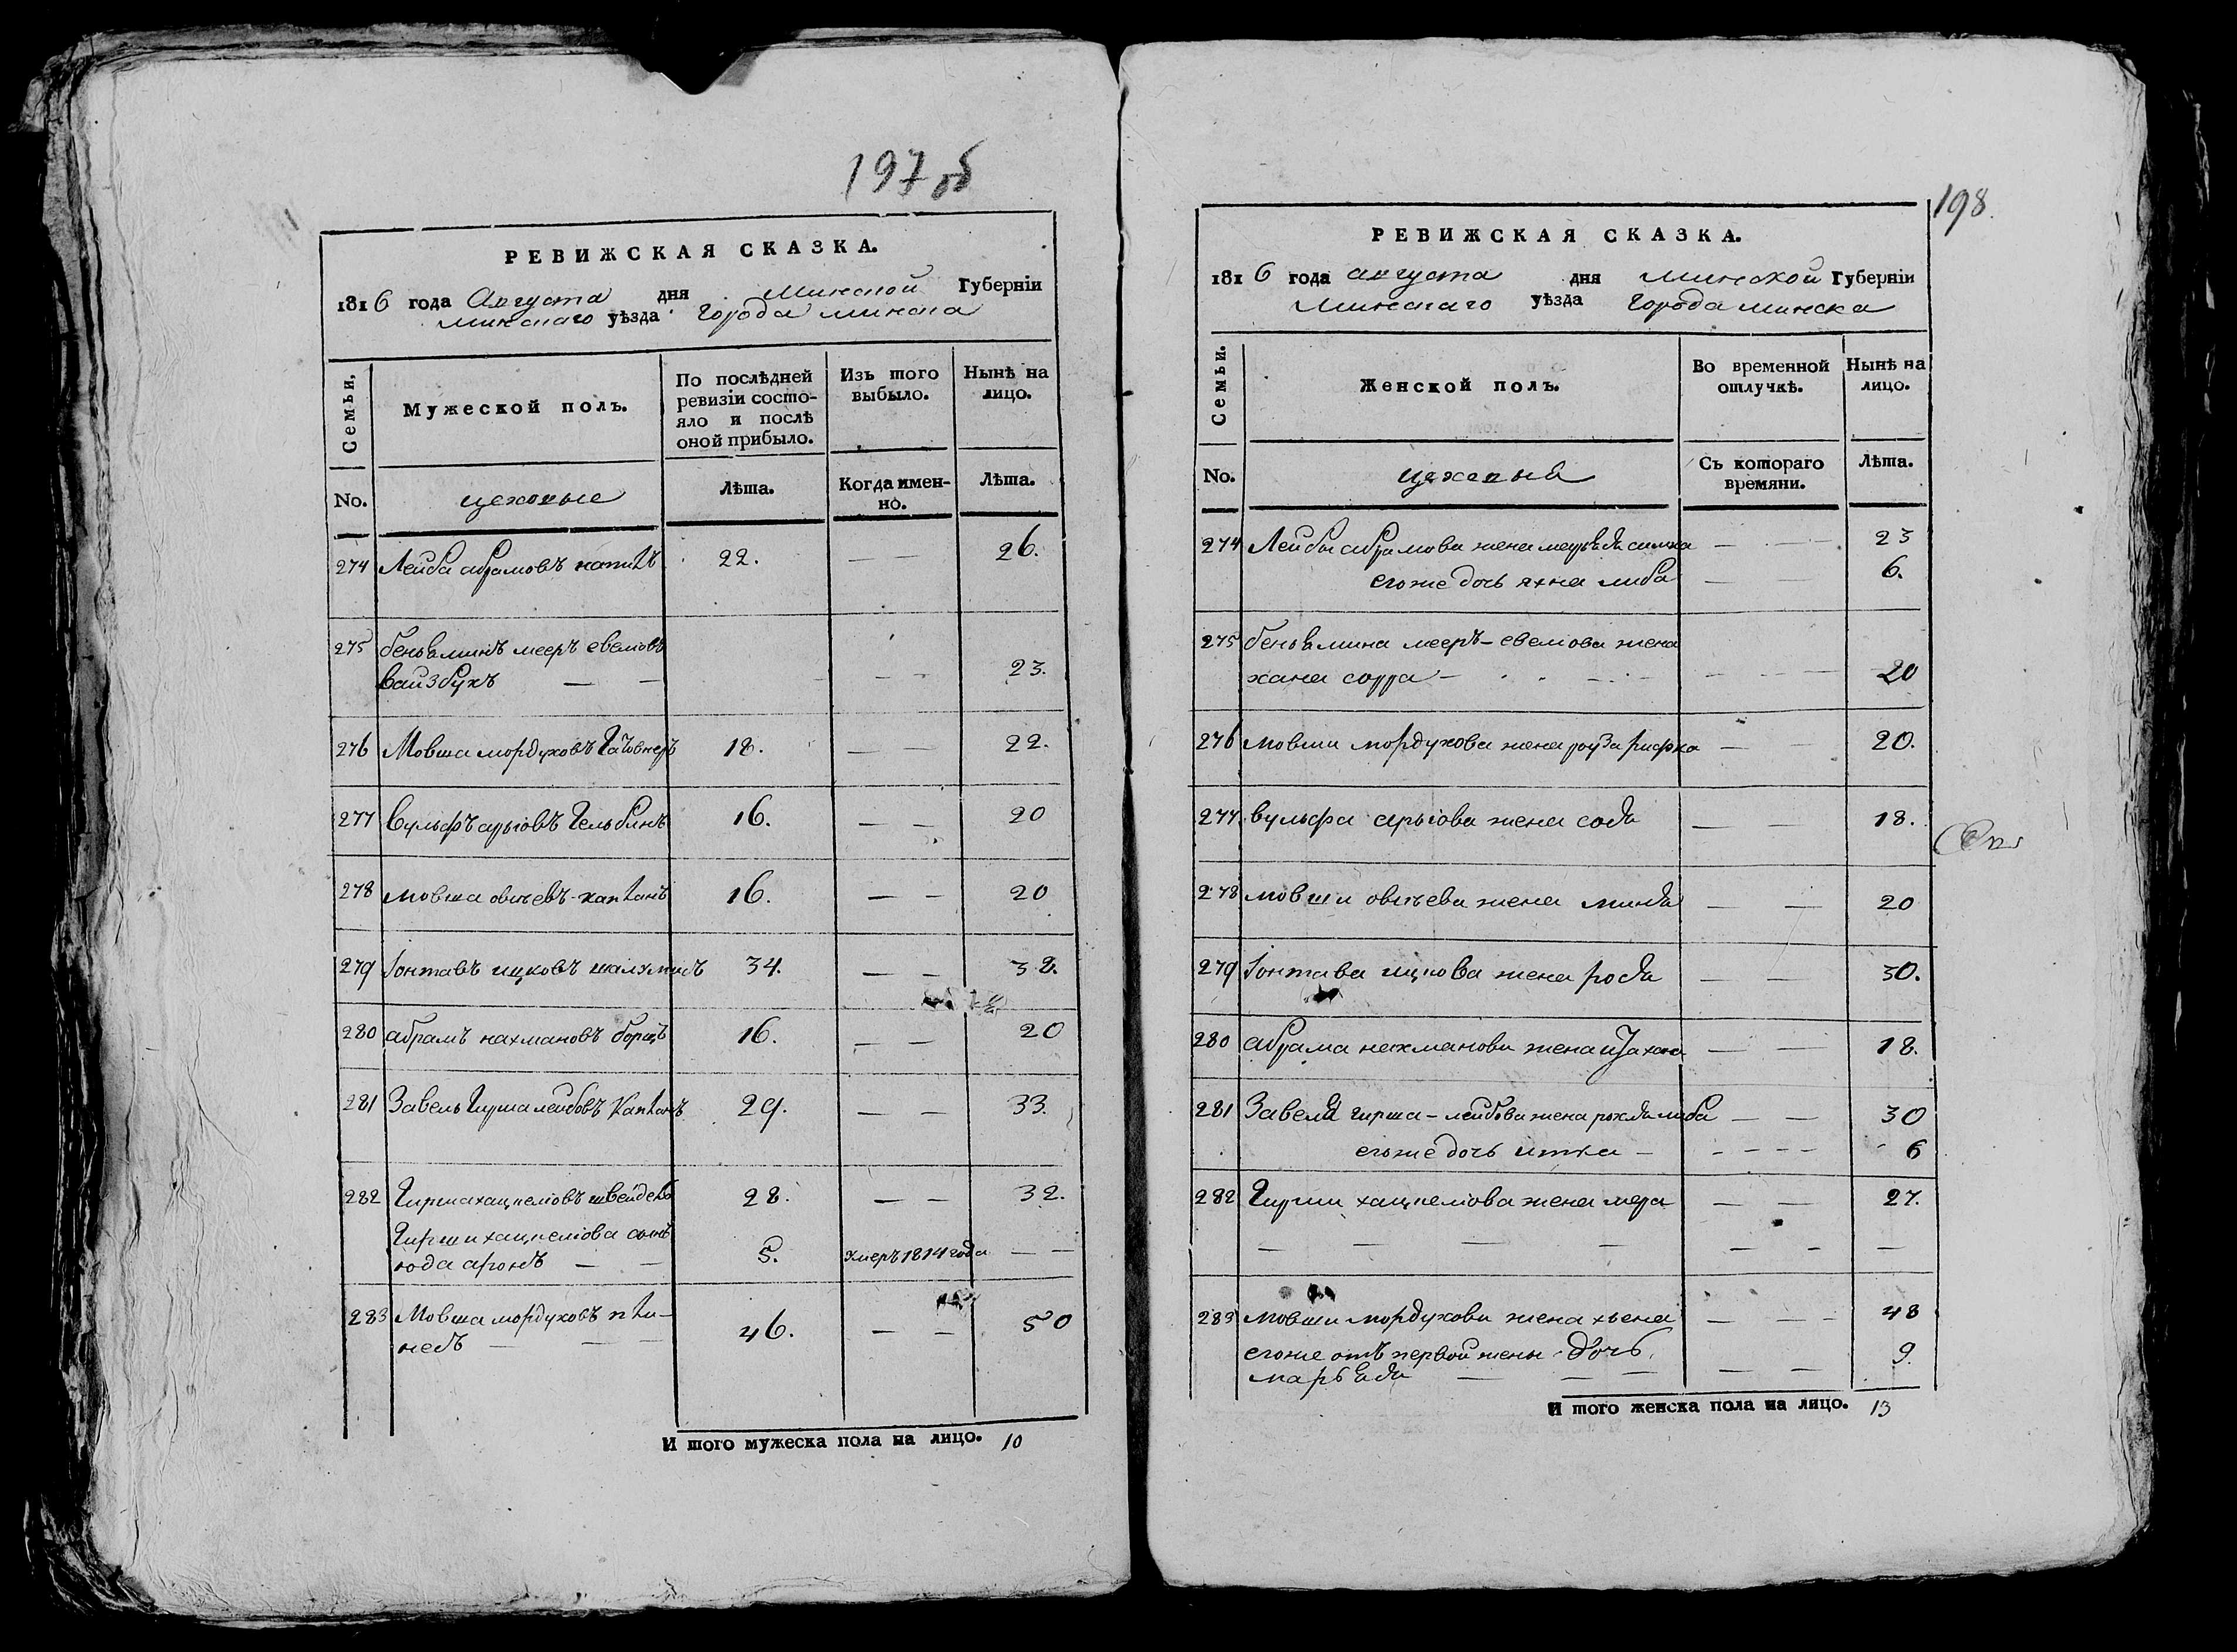 197 об
РЕВИЖСКАЯ СКАЗКА.
1816 года Августа дня Минской Губерніи
Минскаго уѣзда Города минска
Семьи.
Мужеской полъ.
По послѣдней ревизіи состо-
яло и послѣ
оной прибыло.
Изъ того
выбыло.
Нынѣ на
лицо.
No.
цеховые
Лѣта.
Когда имен-
но.
Лѣта.
274 Лейба абрамовъ 22. — — 26.
275 беньяминъ мееръ евелювъ
вайзбухъ — — — — 23.
276 Мовша мордуховъ 18. — — 22.
277 вульфъ арьювъ 16. — — 20
278 мовша овшеевъ капланъ 16. — — 20
279 Іонтавъ ицковъ 34. — — 38.
280 абрамъ нахмановъ борщъ 16. — — 20
281 Завель гирша лейбовъ Капланъ 29. — — 33.
282 Гирша хацкелювъ 28. — — 32.
Гирши хацкелюва сынъ
юда аронъ — — 5. умеръ 1814 года — —
283 Мовша мордуховъ 46. — — 50
И того мужеска пола на лицо. 10
198.
РЕВИЖСКАЯ СКАЗКА.
1816 года августа дня Минской Губерніи
Минскаго уѣзда Города минска
Семьи.
Женской полъ.
Во временной
отлучкѣ.
Нынѣ на
лицо.
No.
цеховые
Съ котораго
времяни.
Лѣта.
274 Лейбы абрамова жена — — 23
его же дочь яхна либа — — 6.
275 беньямина мееръ-евелюва жена
хана сорра — — — 20
276 мовши мордухова жена роуза рифка — — 20.
277 вульфа арьюва жена содя — — 18.
278 мовши овшеева жена миндя — — 20
279 Іонтава ицкова жена родя — — 30.
280 абрама нахманова жена — — 18.
281 Завеля гирша-лейбова жена либа — — 30
его же дочь итка — — — — — 6
282 Гирши хацкелюва жена мера — — 27.
— — — — — — — —
283 мовши мордухова жена хьена — — — 48
его же отъ первой жены дочь — — 9.
марьядя — — —
И того женска пола на лицо. 13